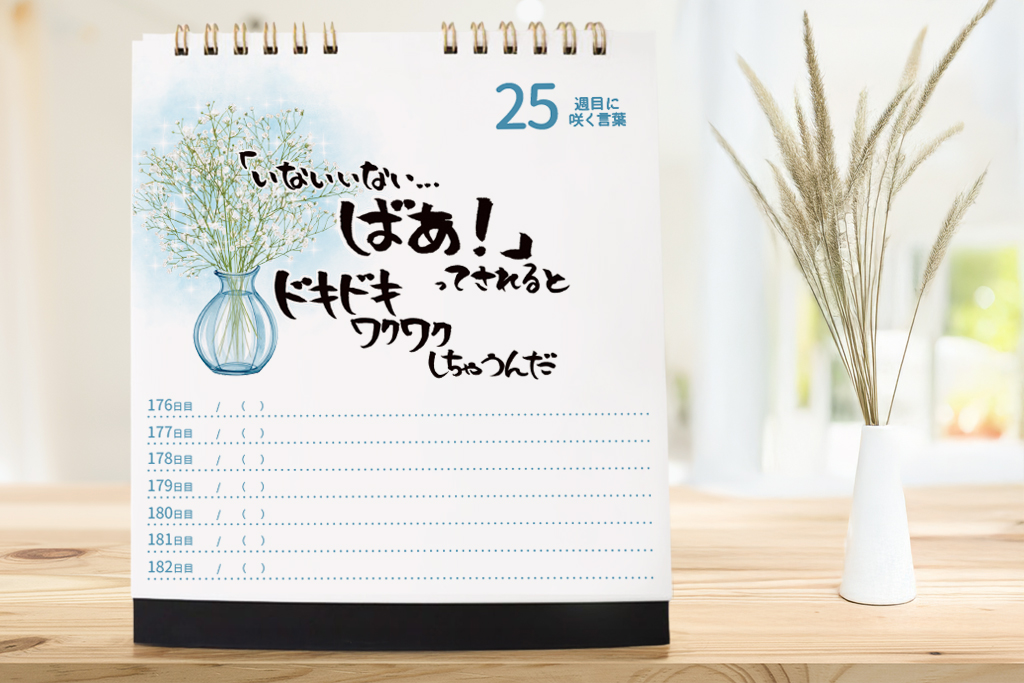 25 週目に
咲く言葉
「いないいない…
ばあ！」
ってされると
ドキドキ
ワクワク
しちゃうんだ
176日目 / ( )
177日目 / ( )
178日目 / ( )
179日目 / ( )
180日目 / ( )
181日目 / ( )
182日目 / ( )